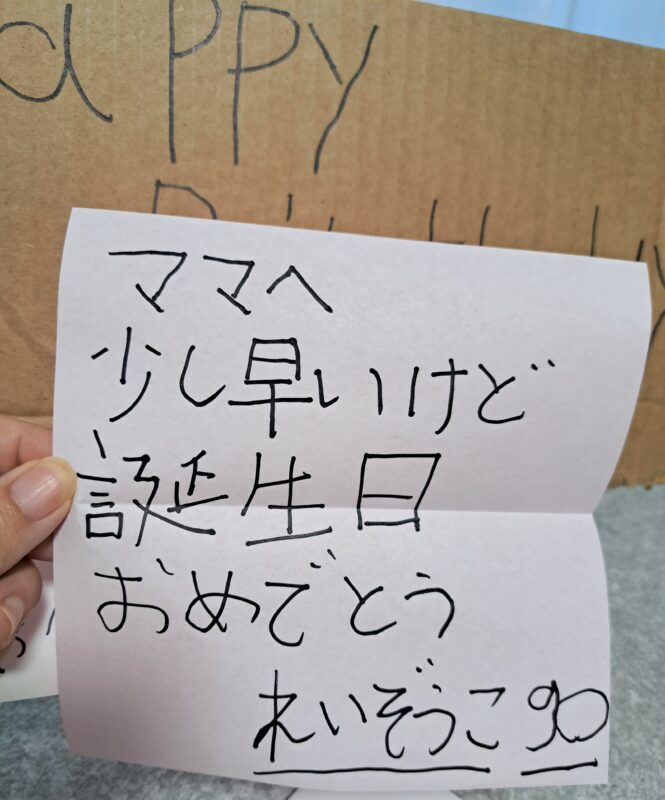 appy
ママへ
少し早いけど
誕生日
おめでとう
れいぞうこ go